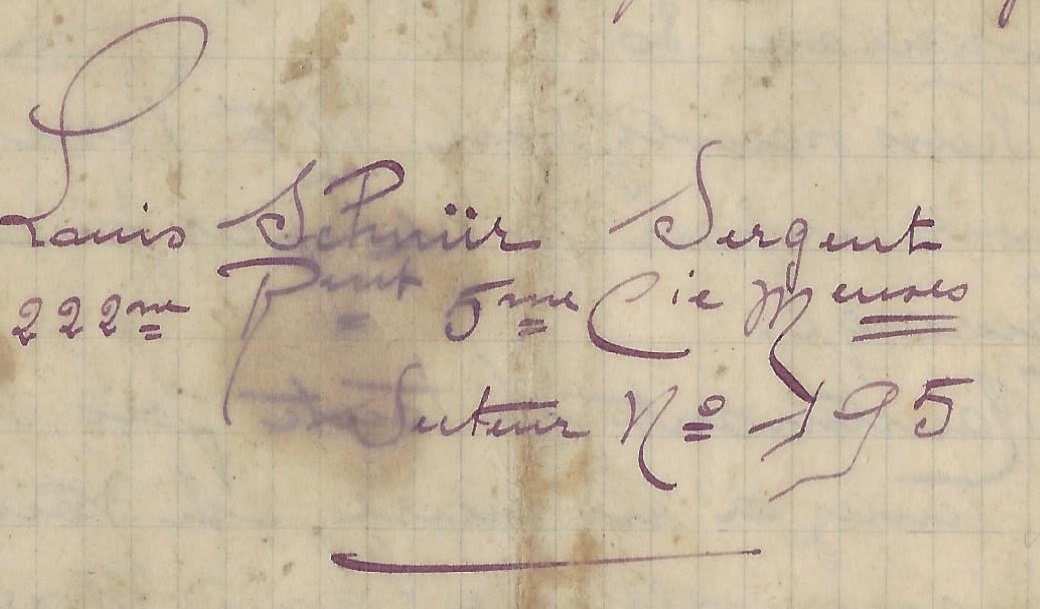 Louis Schnür Sergent
222me Rmt 5me Cie Meuses
Secteur No 195